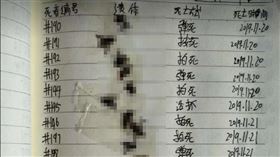 死者编号 遗体 死亡方式 死亡时间
#190 弹死 2019.11.20
#191 拍死 2019.11.20
#192 拍死 2019.11.20
#193 弹死 2019.11.20
#194 拍死 2019.11.20
#195 2019.11.20
#196 拍死 2019.11.21
#197 拍死 2019.11.21
2019.11.21